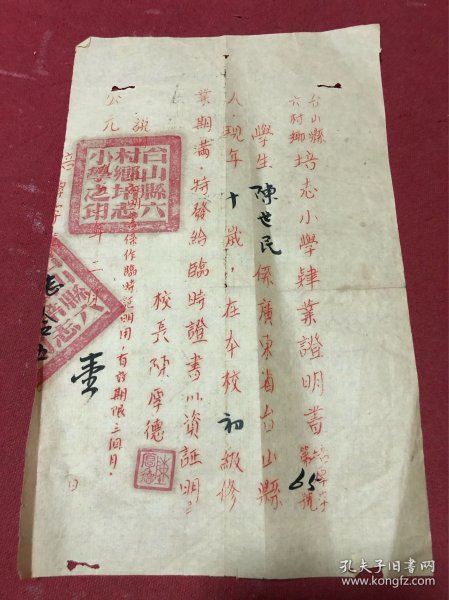 台山縣
六村鄉
培志小學肄業證明書
第65號
學生陳世民係廣東省台山縣
人，現年十歲，在本校初級修
業期滿，特發給臨時證書以資証明
校長陳厚德
係作臨時証明用，有效期限三個月。
公元
年二
壹
日
台山縣六
村鄉培志
小學之印
孔夫子旧书网
www.kongfz.com